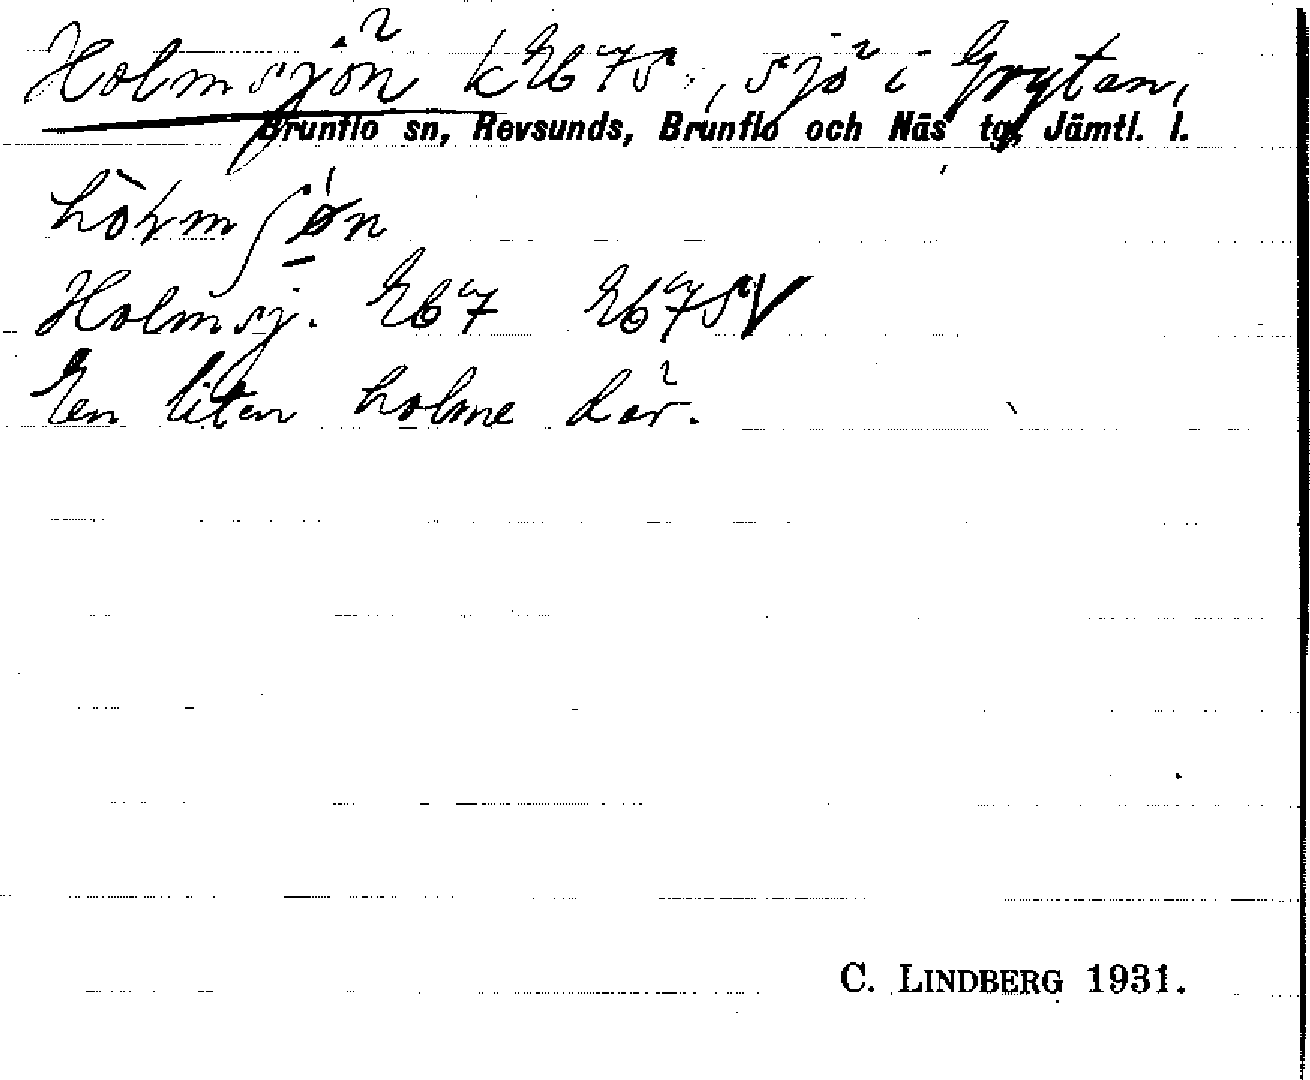 Holmsjön k Eb 7S., sjö i Grytan,
Brunflo sn, Revsunds, Brunflo och Näs tg, Jämtl. l.
Holmsj. Eb7 Eb7SV
En liten holme där.
C. LINDBERG 1931.